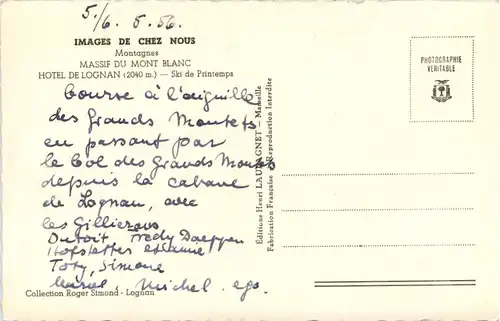 5./6. 5. 56.
IMAGES DE CHEZ NOUS
Montagnes
MASSIF DU MONT BLANC
HOTEL DE LOGNAN (2040 m.) — Ski de Printemps
PHOTOGRAPHIE
VERITABLE
Course à l'aiguille
des Grands Montets
en passant par
le Col des Grands Montets
depuis la cabane
de Lognan, avec
les Gilliérons
Dutoit Fredy Daeppen
Hofstetter
Toty, Simone
Marcel, Michel, ego.
Editions Henri LAUMAGNET — Marseille
Fabrication Française — Reproduction Interdite
Collection Roger Simond - Lognan